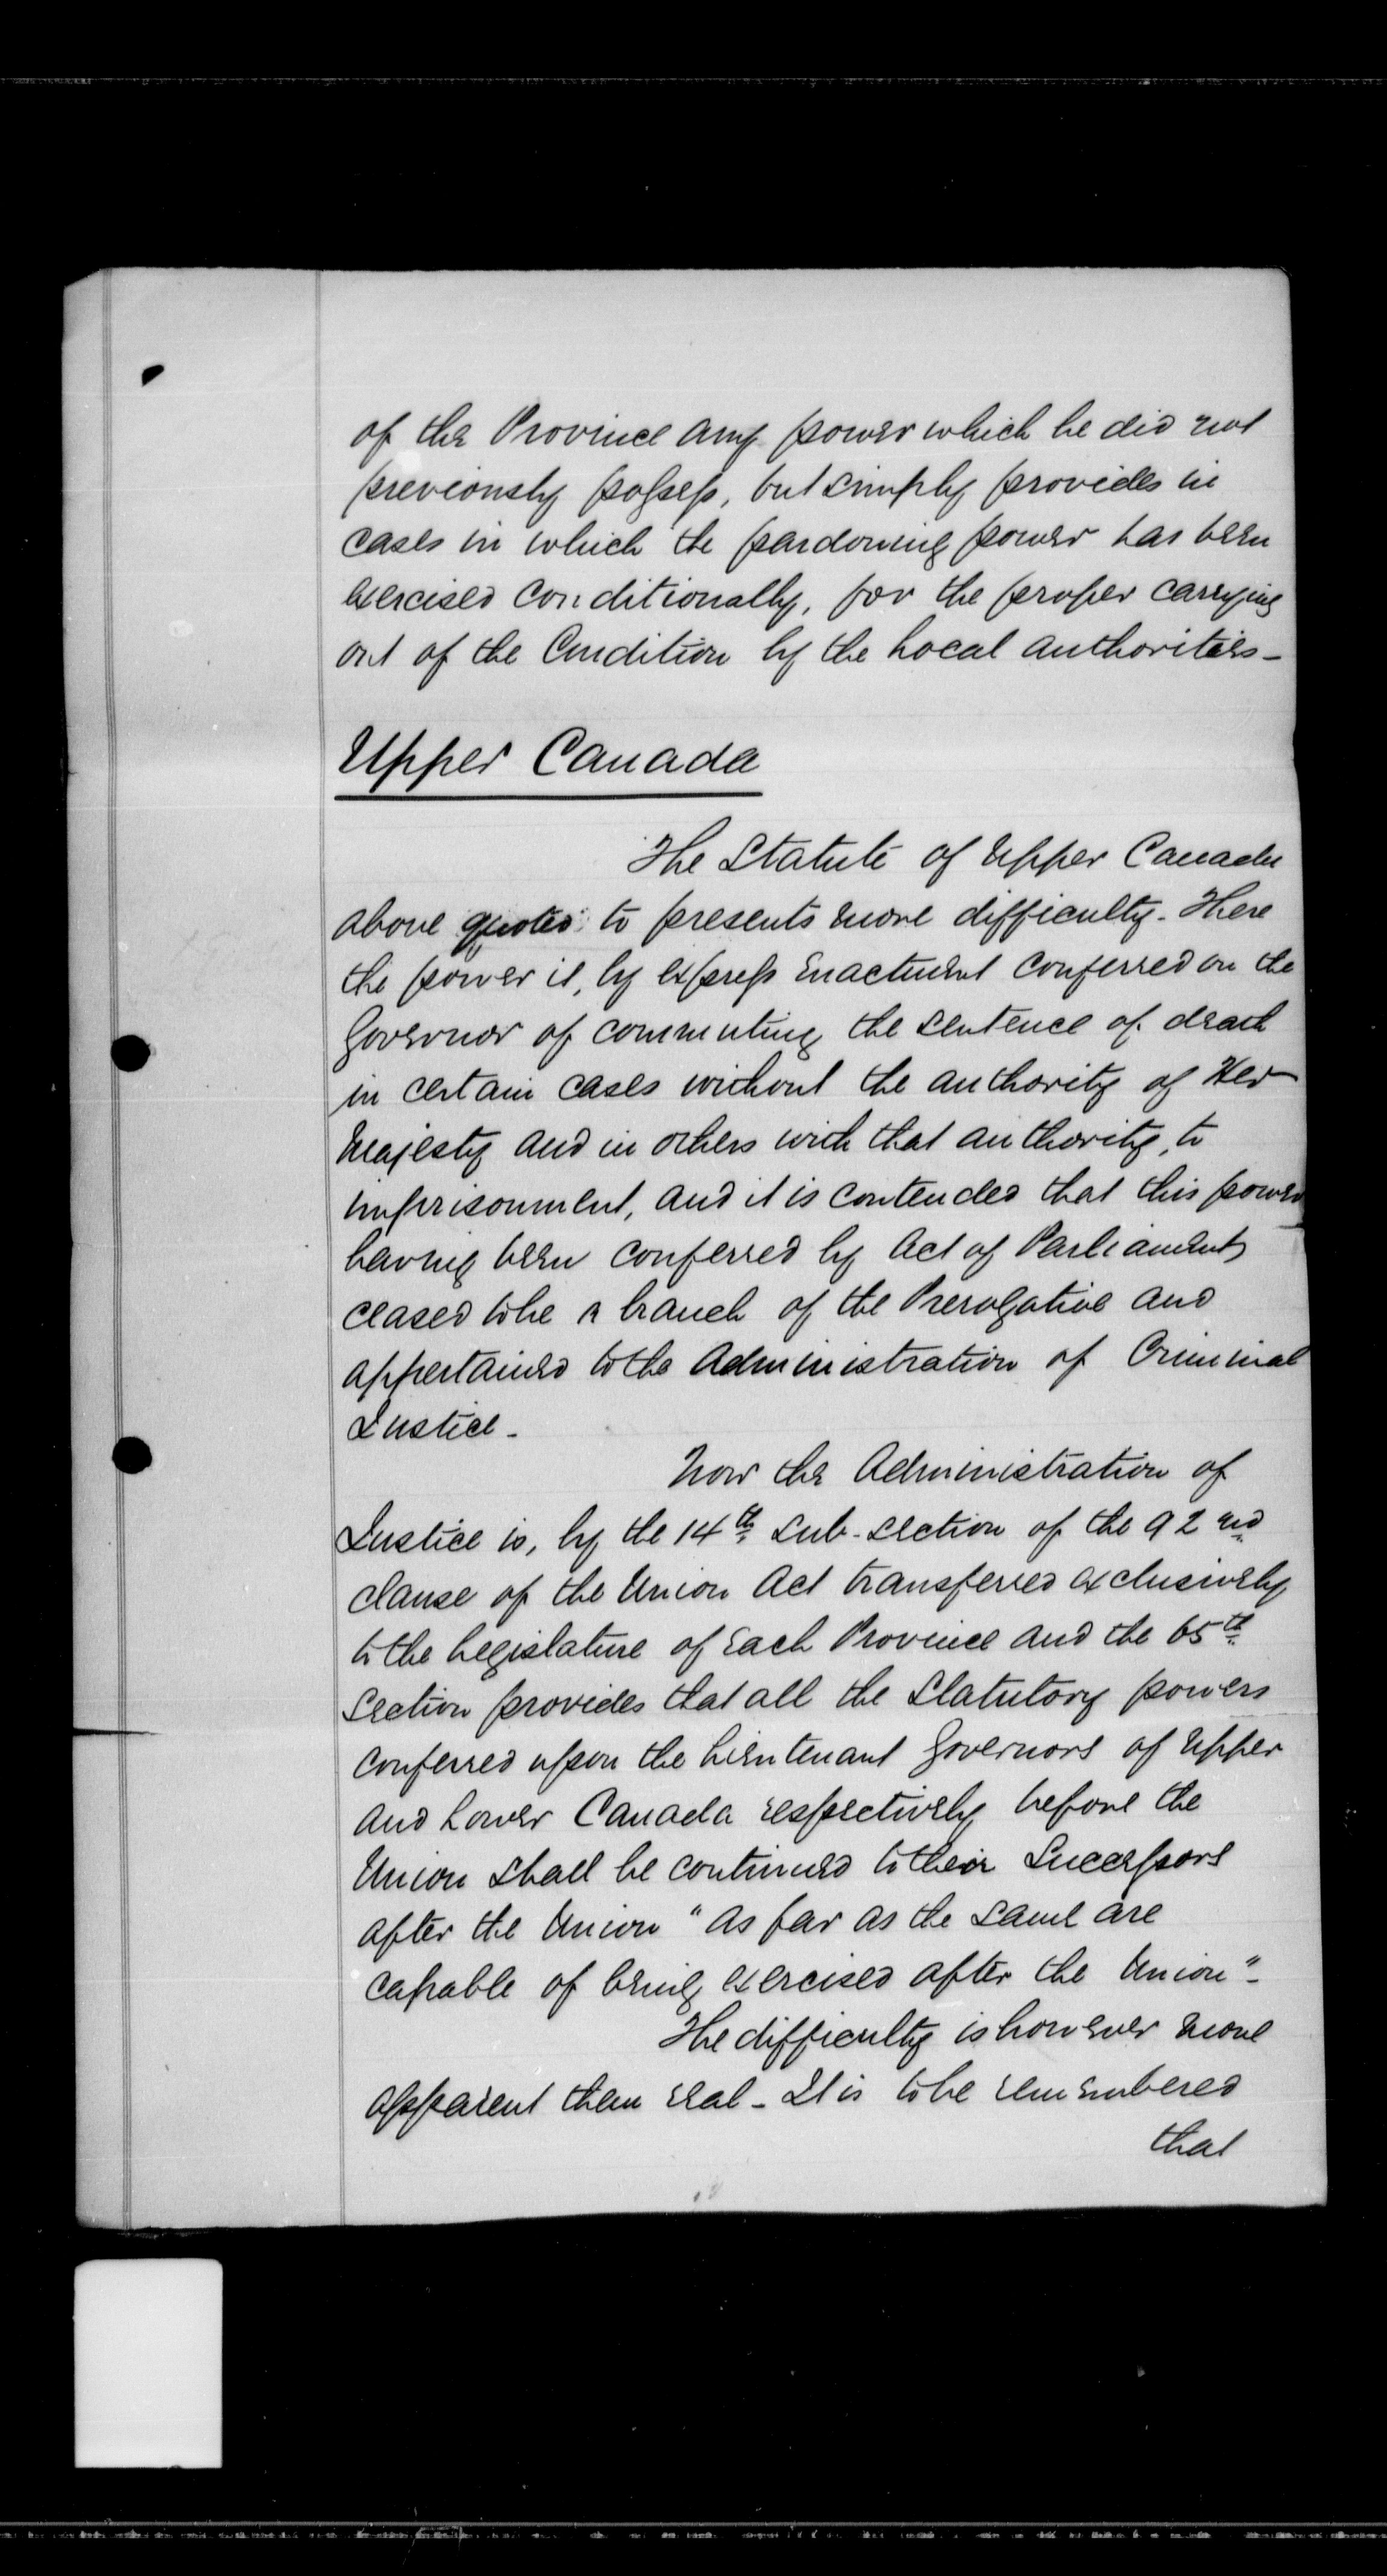 of the Province any power which he did not
previously possess, but simply provides in
cases in which the pardoning power has been
exercised conditionally, for the proper carrying
out of the Condition by the Local authorities -
Upper Canada
The Statute of Upper Canada
above quoted to presents more difficulty. Here
the power is, by express enactment conferred on the
Governor of commuting the sentence of death
in certain cases without the authority of Her
Majesty and in others with that authority, to
imprisonment, and it is contended that this power
having been conferred by Act of Parliament
ceased to be a branch of the Prerogative and
appertained to the Administration of Criminal
Justice -
Now the Administration of
Justice is, by the 14th Sub-section of the 92nd
clause of the Union Act transferred exclusively
to the Legislature of each Province and the 65th
Section provides that all the Statutory powers
conferred upon the Lieutenant Governors of Upper
and Lower Canada respectively before the
Union shall be continued to their Successors
after the Union "as far as the same are
capable of being exercised after the Union" -
The difficulty is however more
apparent than real - It is to be remembered
that